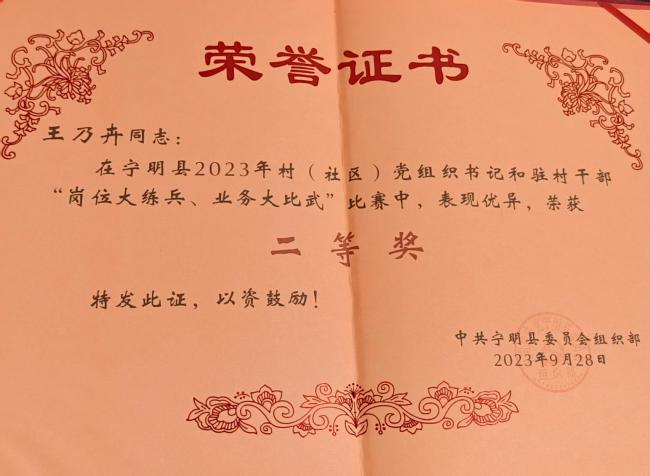 荣誉证书
王乃卉同志：
在宁明县2023年村（社区）党组织书记和驻村干部
“岗位大练兵、业务大比武”比赛中，表现优异，荣获
二等奖
特发此证，以资鼓励！
中共宁明县委员会组织部
2023年9月28日